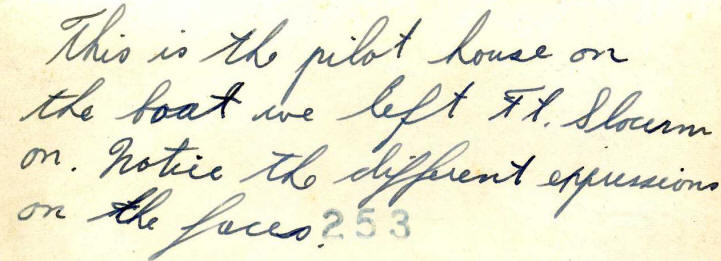 This is the pilot house on
the boat we left Ft. Slocum
on. Notice the different expressions
on the faces.
253